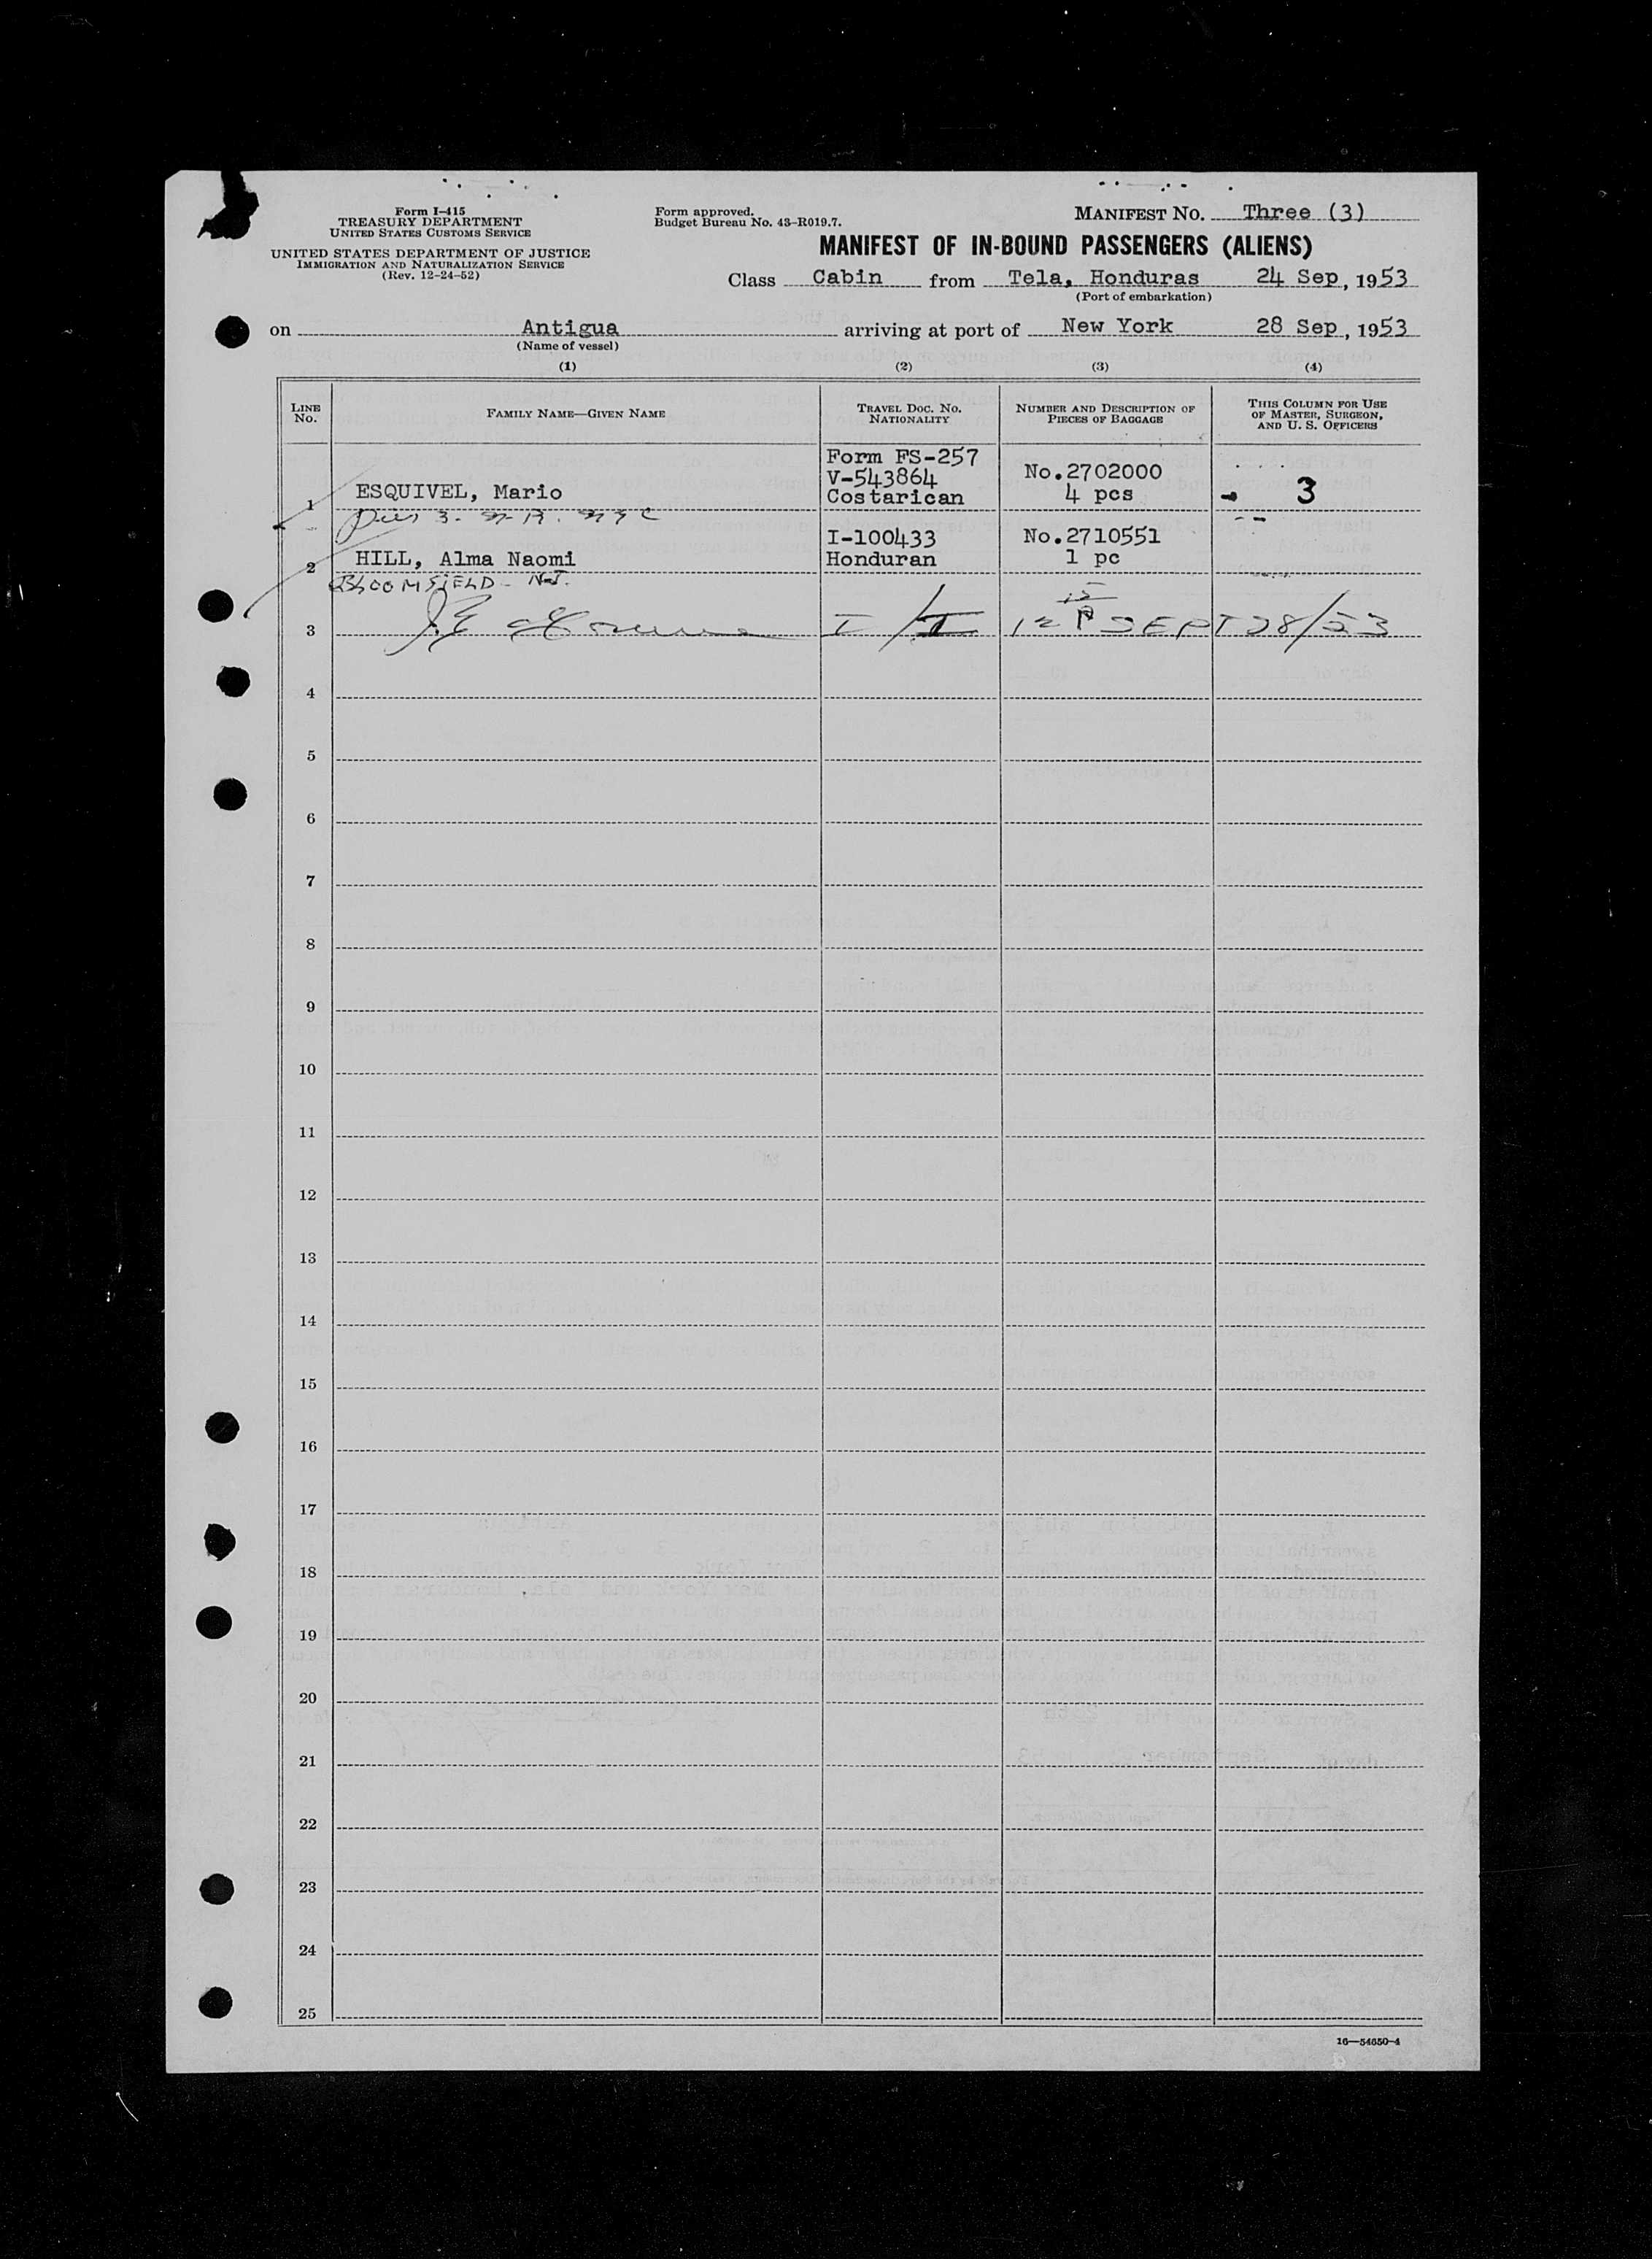 Form I-415
TREASURY DEPARTMENT
UNITED STATES CUSTOMS SERVICE
UNITED STATES DEPARTMENT OF JUSTICE
IMMIGRATION AND NATURALIZATION SERVICE
(Rev. 12-24-52)
Form approved.
Budget Bureau No. 43-R019.7.
MANIFEST NO. Three (3)
MANIFEST OF IN-BOUND PASSENGERS (ALIENS)
Class Cabin from Tela, Honduras 24 Sep, 1953
(Port of embarkation)
on Antigua arriving at port of New York 28 Sep, 1953
(Name of vessel)
(1) (2) (3) (4)
LINE NO.
FAMILY NAME—GIVEN NAME
TRAVEL DOC. NO. NATIONALITY
NUMBER AND DESCRIPTION OF PIECES OF BAGGAGE
THIS COLUMN FOR USE OF MASTER, SURGEON, AND U. S. OFFICERS
Form FS-257
V-543864 No.2702000
1 ESQUIVEL, Mario Costarican 4 pcs 3
Pier 3. N.R. NYC
I-100433 No.2710551
2 HILL, Alma Naomi Honduran 1 pc
BLOOMFIELD - N.J.
3 I/I 12 15 P SEPT 28/53
4
5
6
7
8
9
10
11
12
13
14
15
16
17
18
19
20
21
22
23
24
25
16—54650-4